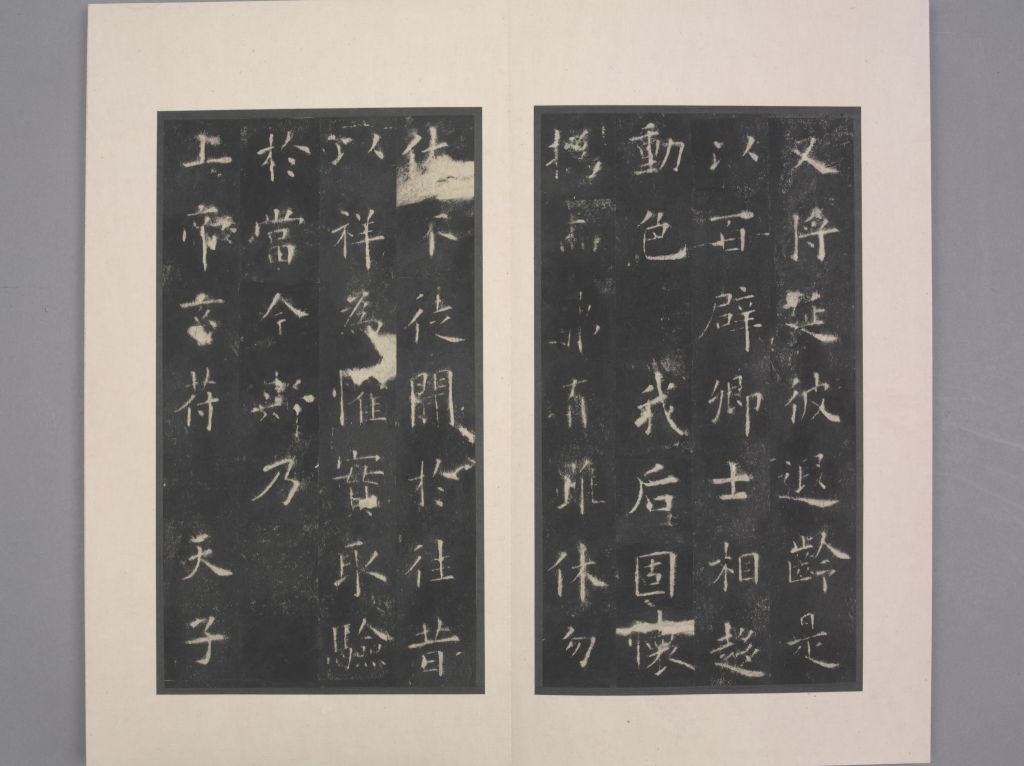 又將延彼遐齡是
以百辟卿士相趍
動色我后固懷
撝而弗有雖休勿
休不徒聞於往昔
以祥為懼實取驗
於當今斯乃
上帝玄符天子